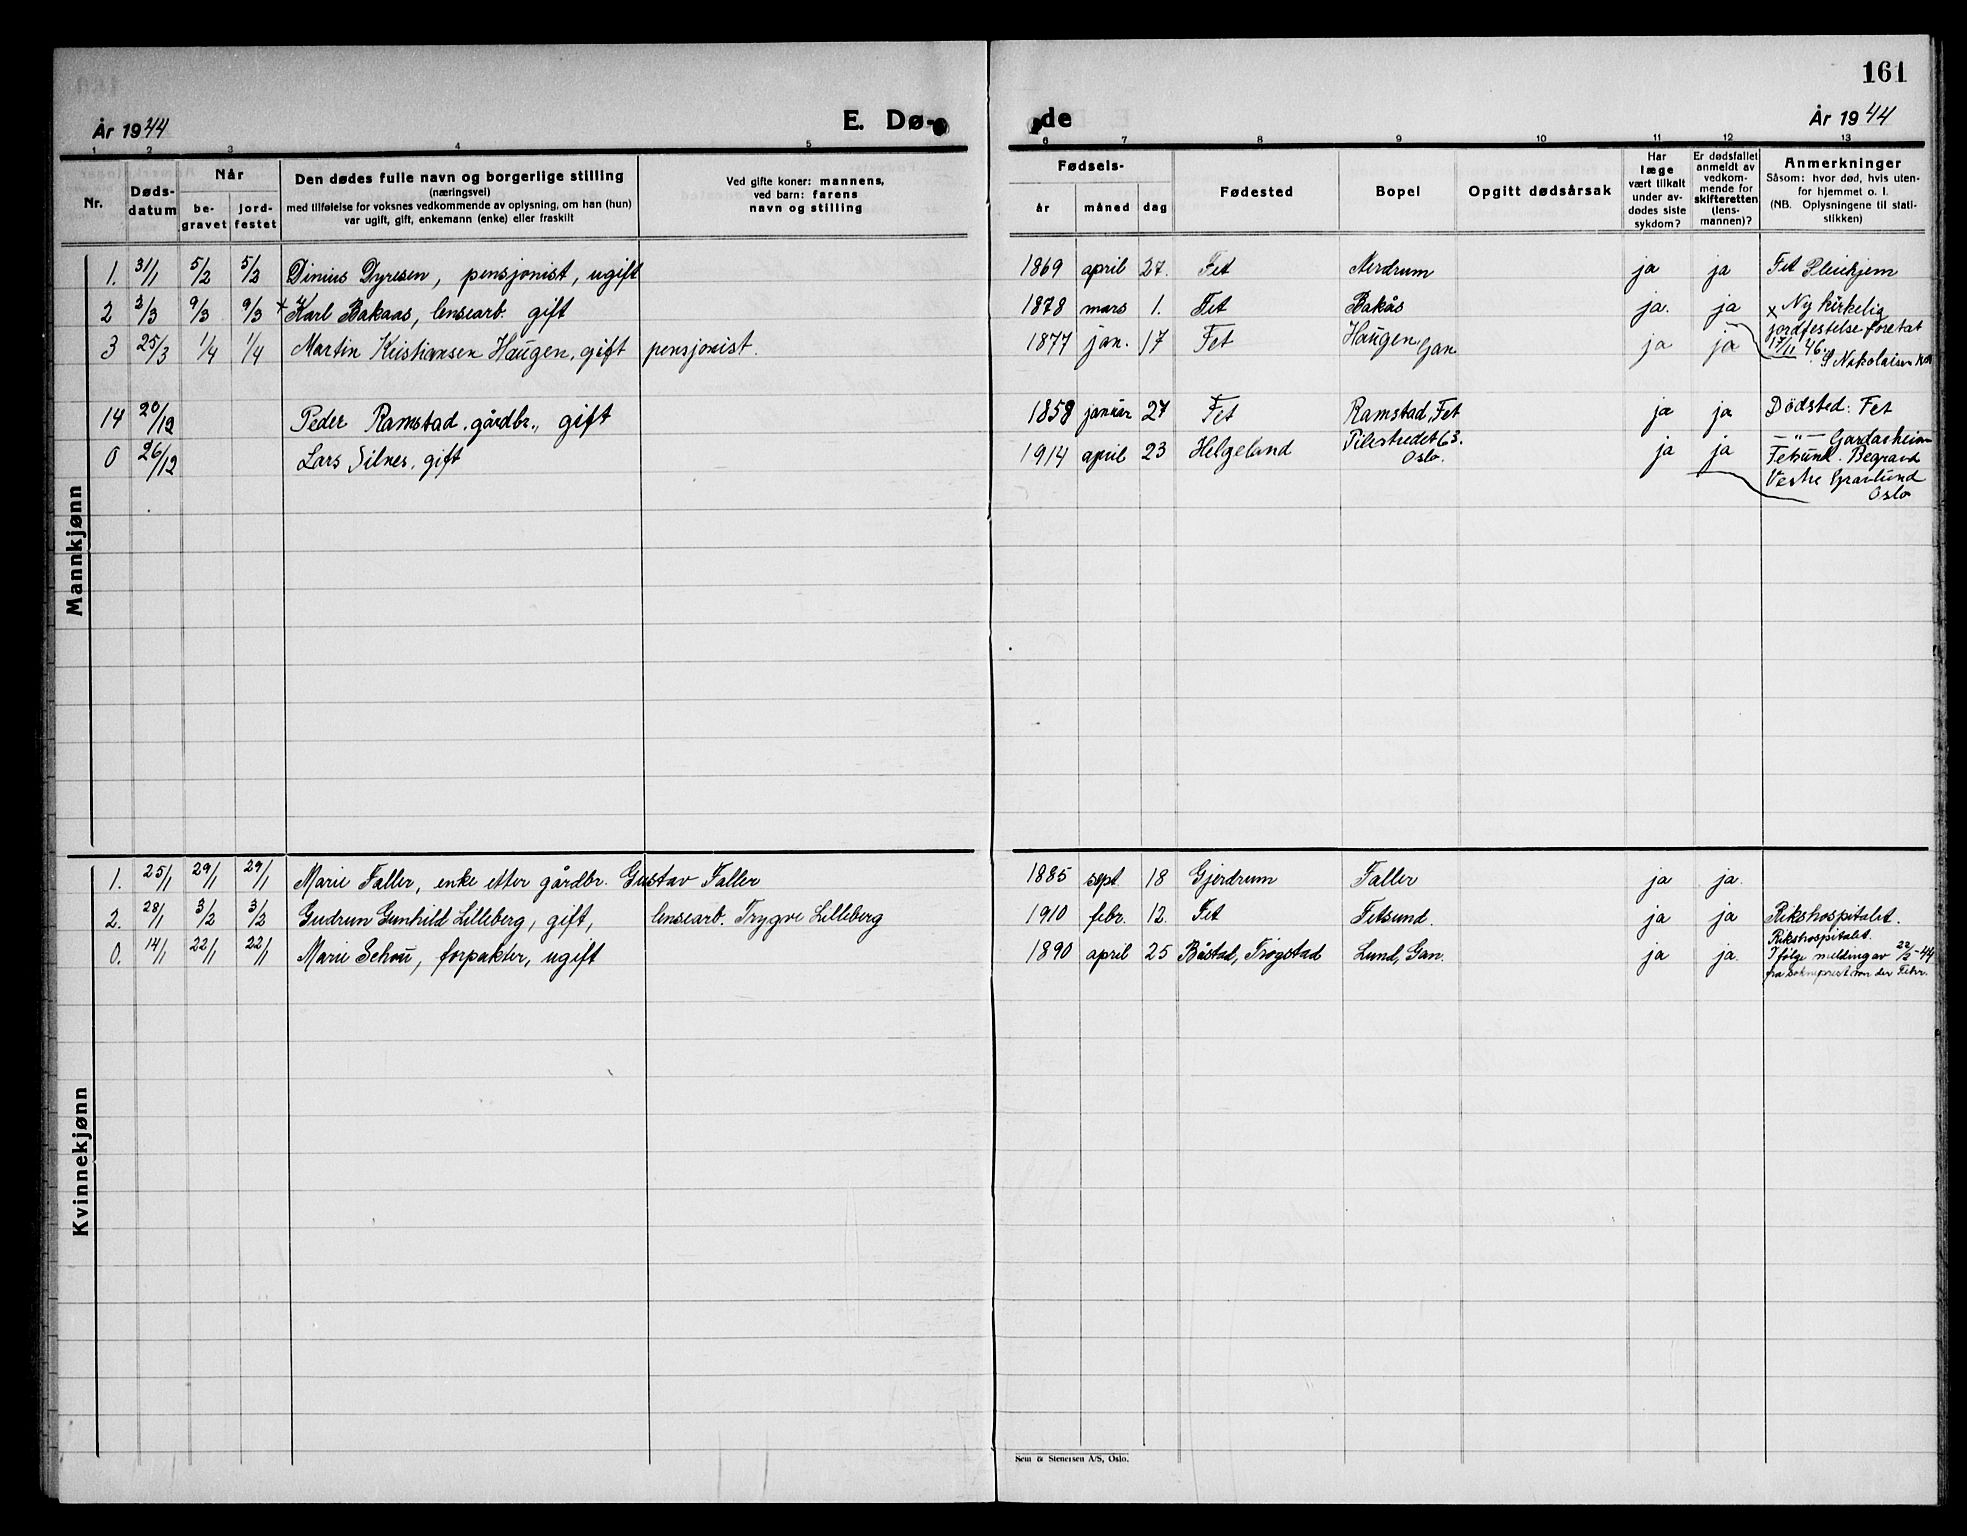 161
År 1944
E. Dø-
de
År 1944
1 2 3 4 5 6 7 8 9 10 11 12 13
Nr.
Døds-
datum
Når
be-
gravet
jord-
festet
Den dødes fulle navn og borgerlige stilling
(næringsvei)
med tilføielse for voksnes vedkommende av oplysning, om han (hun)
var ugift, gift, enkemann (enke) eller fraskilt
Ved gifte koner: mannens,
ved barn: farens
navn og stilling
Fødsels-
år måned dag
Fødested
Bopel
Opgitt dødsårsak
Har
læge
vært tilkalt
under av-
dødes siste
sykdom?
Er dødsfallet
anmeldt av
vedkom-
mende for
skifteretten
(lens-
mannen)?
Anmerkninger
Såsom: hvor død, hvis uten-
for hjemmet o. l.
(NB. Oplysningene til stati-
stikken)
Mannkjønn
1. 31/1 5/2 5/2 Dinius Dyresen, pensjonist, ugift 1869 april 27. Fet Nerdrum ja ja Fet Pleiehjem
2 3/3 9/3 9/3 x Karl Bakaas, lensearb. gift 1878 mars 1. Fet Bakås ja. ja x Ny kirkelig
jordfestelse foretat
17/11 46. S Nikolaisen
3 25/3 1/4 1/4 Martin Kristiansen Haugen, gift pensjonist. 1877 jan. 17 Fet Haugen, Gan ja ja
14 20/12 Peder Ramstad, gårdbr., gift 1858 januar 27 Fet Ramstad, Fet ja ja Dödsted: Fet
0 26/12 Lars Silnes, gift 1914 april 23 Helgeland Pilestredet 63.
Oslo. ja ja —"— Gardarheim
Fetsund. Begravd
Vestre Gravlund
Oslo
Kvinnekjønn
1. 25/1 29/1 29/1 Marie Faller, enke etter gårdbr. Gustav Faller 1885 sept. 18 Gjerdrum Faller ja ja.
2. 28/1 3/2 3/2 Gudrun Gunhild Lilleberg, gift, lensearb. Trygve Lilleberg 1910 febr. 12. Fet Fetsund. ja ja Rikshospitalet.
0. 14/1 22/1 22/1 Marie Schou, forpakter, ugift 1890 april 25 Båstad, Trøgstad Lund, Gan. ja ja. Rikshospitalet.
Ifølge melding av 22/2-44
fra sokneprest von der Fehr.
Sem & Stenersen A/S, Oslo.